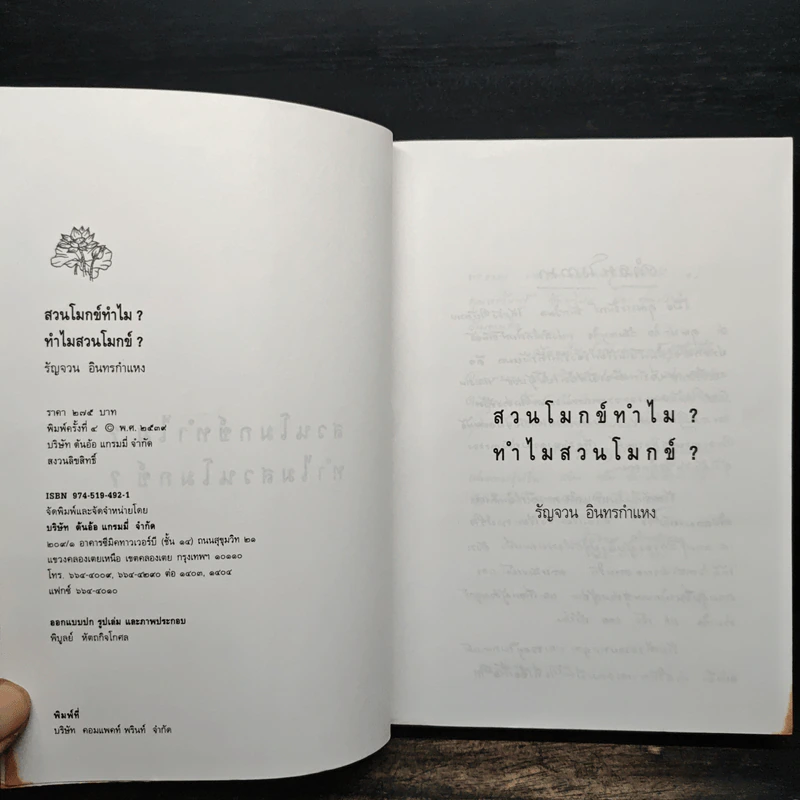 สวนโมกข์ทำไม ?
ทำไมสวนโมกข์ ?
รัญจวน อินทรกำแหง
ราคา ๒๗๕ บาท
พิมพ์ครั้งที่ ๔ © พ.ศ. ๒๕๓๙
บริษัท ต้นอ้อ แกรมมี่ จำกัด
สงวนลิขสิทธิ์
ISBN 974-519-492-1
จัดพิมพ์และจัดจำหน่ายโดย
บริษัท ต้นอ้อ แกรมมี่ จำกัด
๒๐๙/๑ อาคารซีมิคทาวเวอร์บี (ชั้น ๑๔) ถนนสุขุมวิท ๒๑
แขวงคลองเตยเหนือ เขตคลองเตย กรุงเทพฯ ๑๐๑๑๐
โทร. ๖๖๔-๔๐๐๙, ๖๖๔-๔๒๙๐ ต่อ ๑๔๐๓, ๑๔๐๔
แฟกซ์ ๖๖๔-๔๐๑๐
ออกแบบปก รูปเล่ม และภาพประกอบ
พิบูลย์ หัตถกิจโกศล
พิมพ์ที่
บริษัท คอมแพคท์ พรินท์ จำกัด
สวนโมกข์ทำไม ?
ทำไมสวนโมกข์ ?
รัญจวน อินทรกำแหง